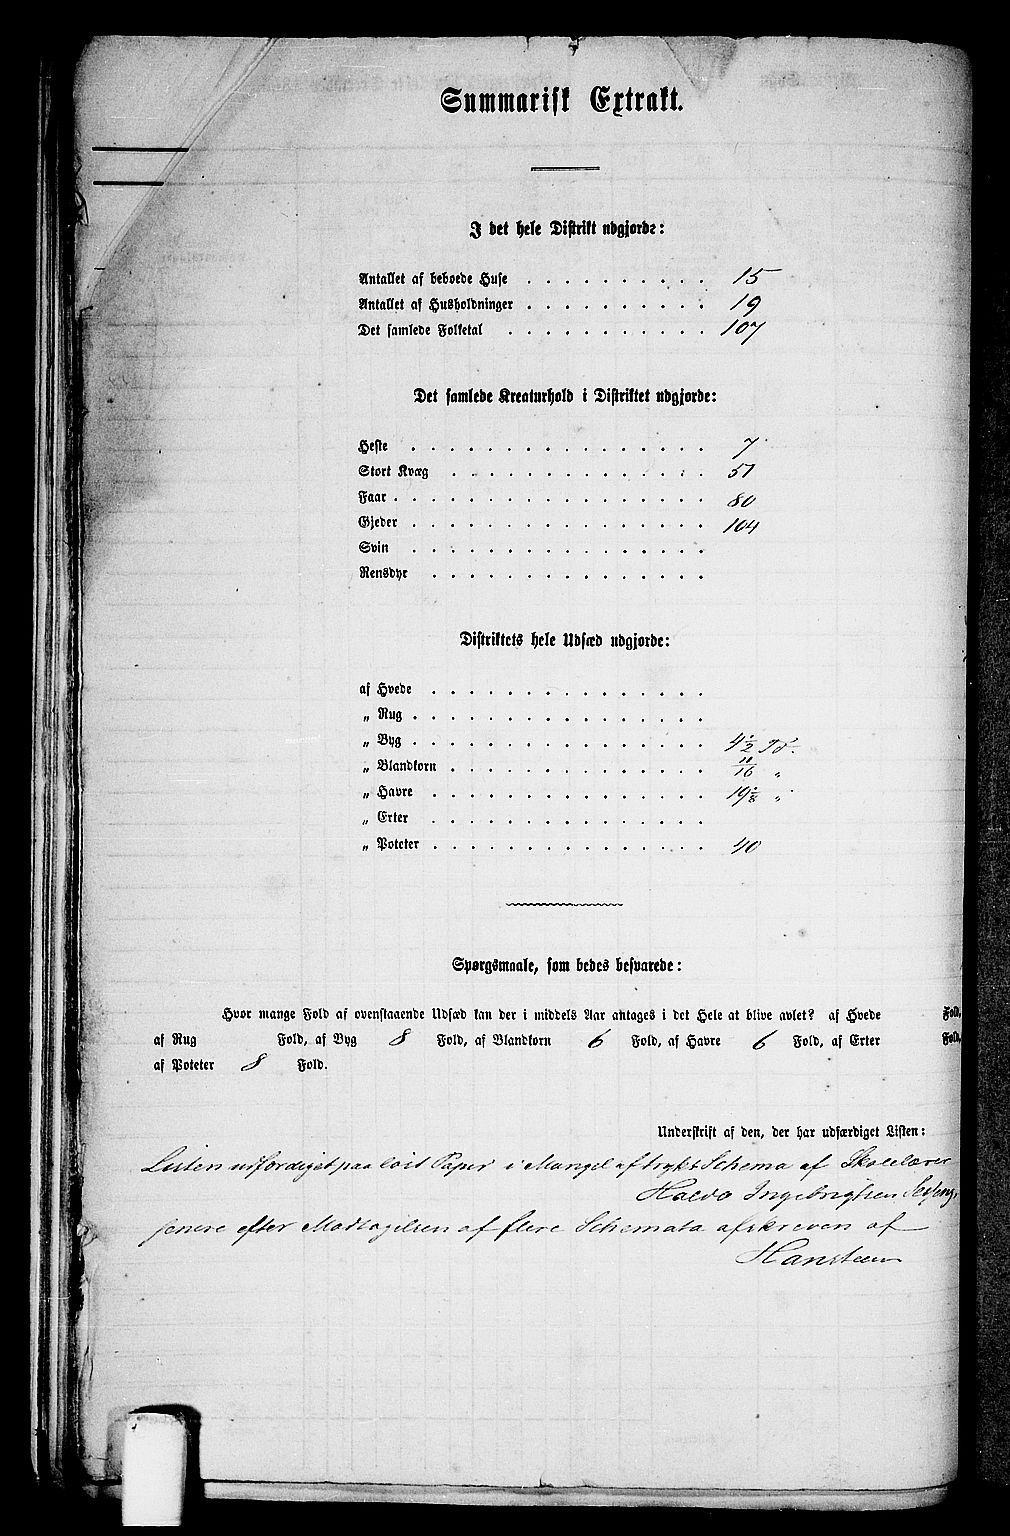 Summarisk Extrakt.
I det hele Distrikt udgjorde:
Antallet af beboede Huse . . . . . . . . . . 15
Antallet af Husholdninger . . . . . . . . . . 19
Det samlede Folketal . . . . . . . . . . . 107
Det samlede Kreaturhold i Distriktet udgjorde:
Heste . . . . . . . . . . . . . . . . 7
Stort Kvæg . . . . . . . . . . . . . . 51
Faar . . . . . . . . . . . . . . . . . 80
Gjeder . . . . . . . . . . . . . . . . 104
Svin . . . . . . . . . . . . . . . .
Rensdyr . . . . . . . . . . . . . . .
Distriktets hele Udsæd udgjorde:
af Hvede . . . . . . . . . . . . . . .
„ Rug . . . . . . . . . . . . . . . .
„ Byg . . . . . . . . . . . . . . . . 4½ Td.
„ Blandkorn . . . . . . . . . . . . . . 11/16 „
„ Havre . . . . . . . . . . . . . . . 19⅛ „
„ Erter . . . . . . . . . . . . . . .
„ Poteter . . . . . . . . . . . . . . . 40
Spørgsmaale, som bedes besvarede:
Hvor mange Fold af ovenstaaende Udsæd kan der i middels Aar antages i det Hele at blive avlet? af Hvede Fold,
af Rug Fold, af Byg 8 Fold, af Blandkorn 6 Fold, af Havre 6 Fold, af Erter Fold,
af Poteter 8 Fold.
Underskrift af den, der har udfærdiget Listen:
Listen udfærdiget paa löst Papir i Mangel af trykt Schema af Skolelærer
Haldo Ingebrigtsen
senere efter Modtagelsen af flere Schemata afskreven af
Hansteen